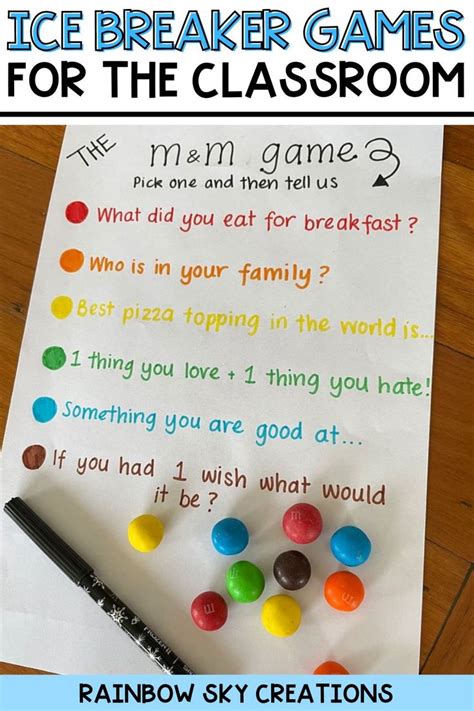 ICE BREAKER GAMES
FOR THE CLASSROOM
THE
m&m game
Pick one and then tell us
What did you eat for breakfast?
Who is in your family?
Best pizza topping in the world is...
1 thing you love + 1 thing you hate!
Something you are good at...
If you had 1 wish what would
it be?
m
m
RAINBOW SKY CREATIONS